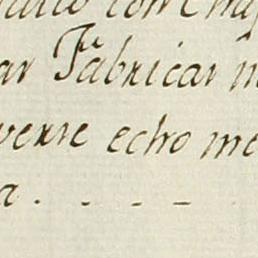 con
ar Fabricar m
verse echo me
a . - - -